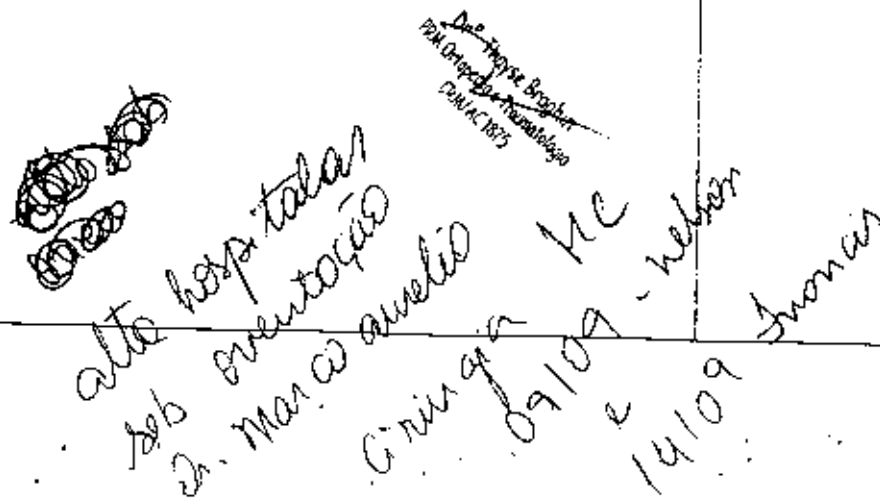 Drª Thayse Braghin
Ortopedia e Traumatologia
CRM/AC 1875
alta hospitalar
sob orientação
Dr. Marco aurelio
Cirurgia HC
09/09 - nelson
e
14/09